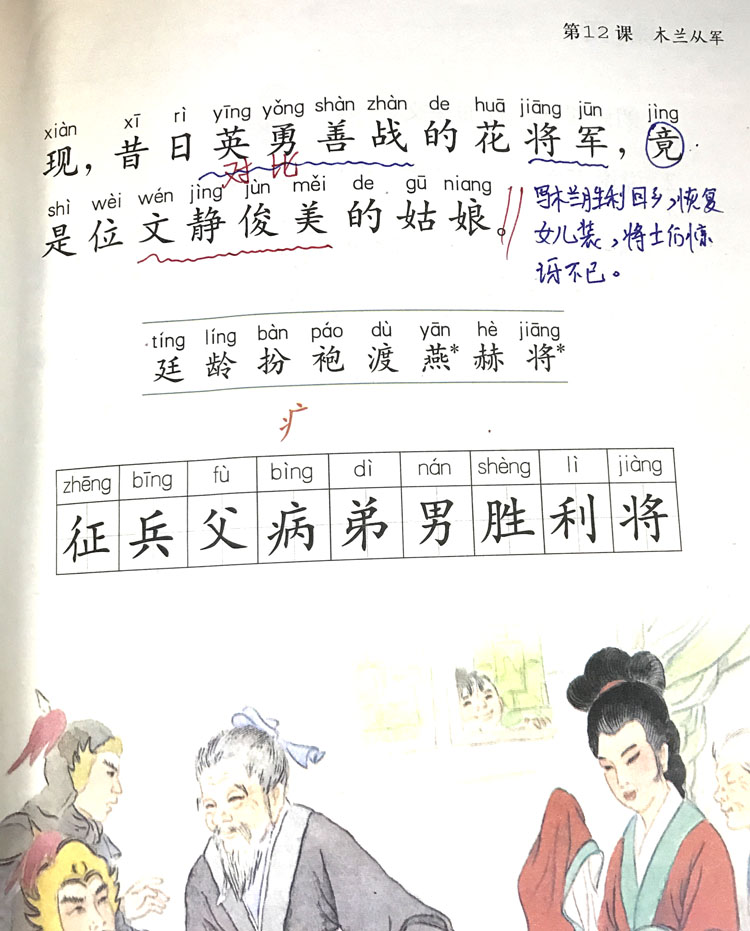 第12课 木兰从军
xiàn xī rì yīng yǒng shàn zhàn de huā jiāng jūn jìng
现，昔日英勇善战的花将军，竟
对比
shì wèi wén jìng jùn měi de gū niang
是位文静俊美的姑娘。
写木兰胜利回乡，恢复
女儿装，将士们惊
讶不已。
tíng líng bàn páo dù yān hè jiāng
廷 龄 扮 袍 渡 燕* 赫 将*
疒
zhēng bīng fù bìng dì nán shèng lì jiàng
征 兵 父 病 弟 男 胜 利 将